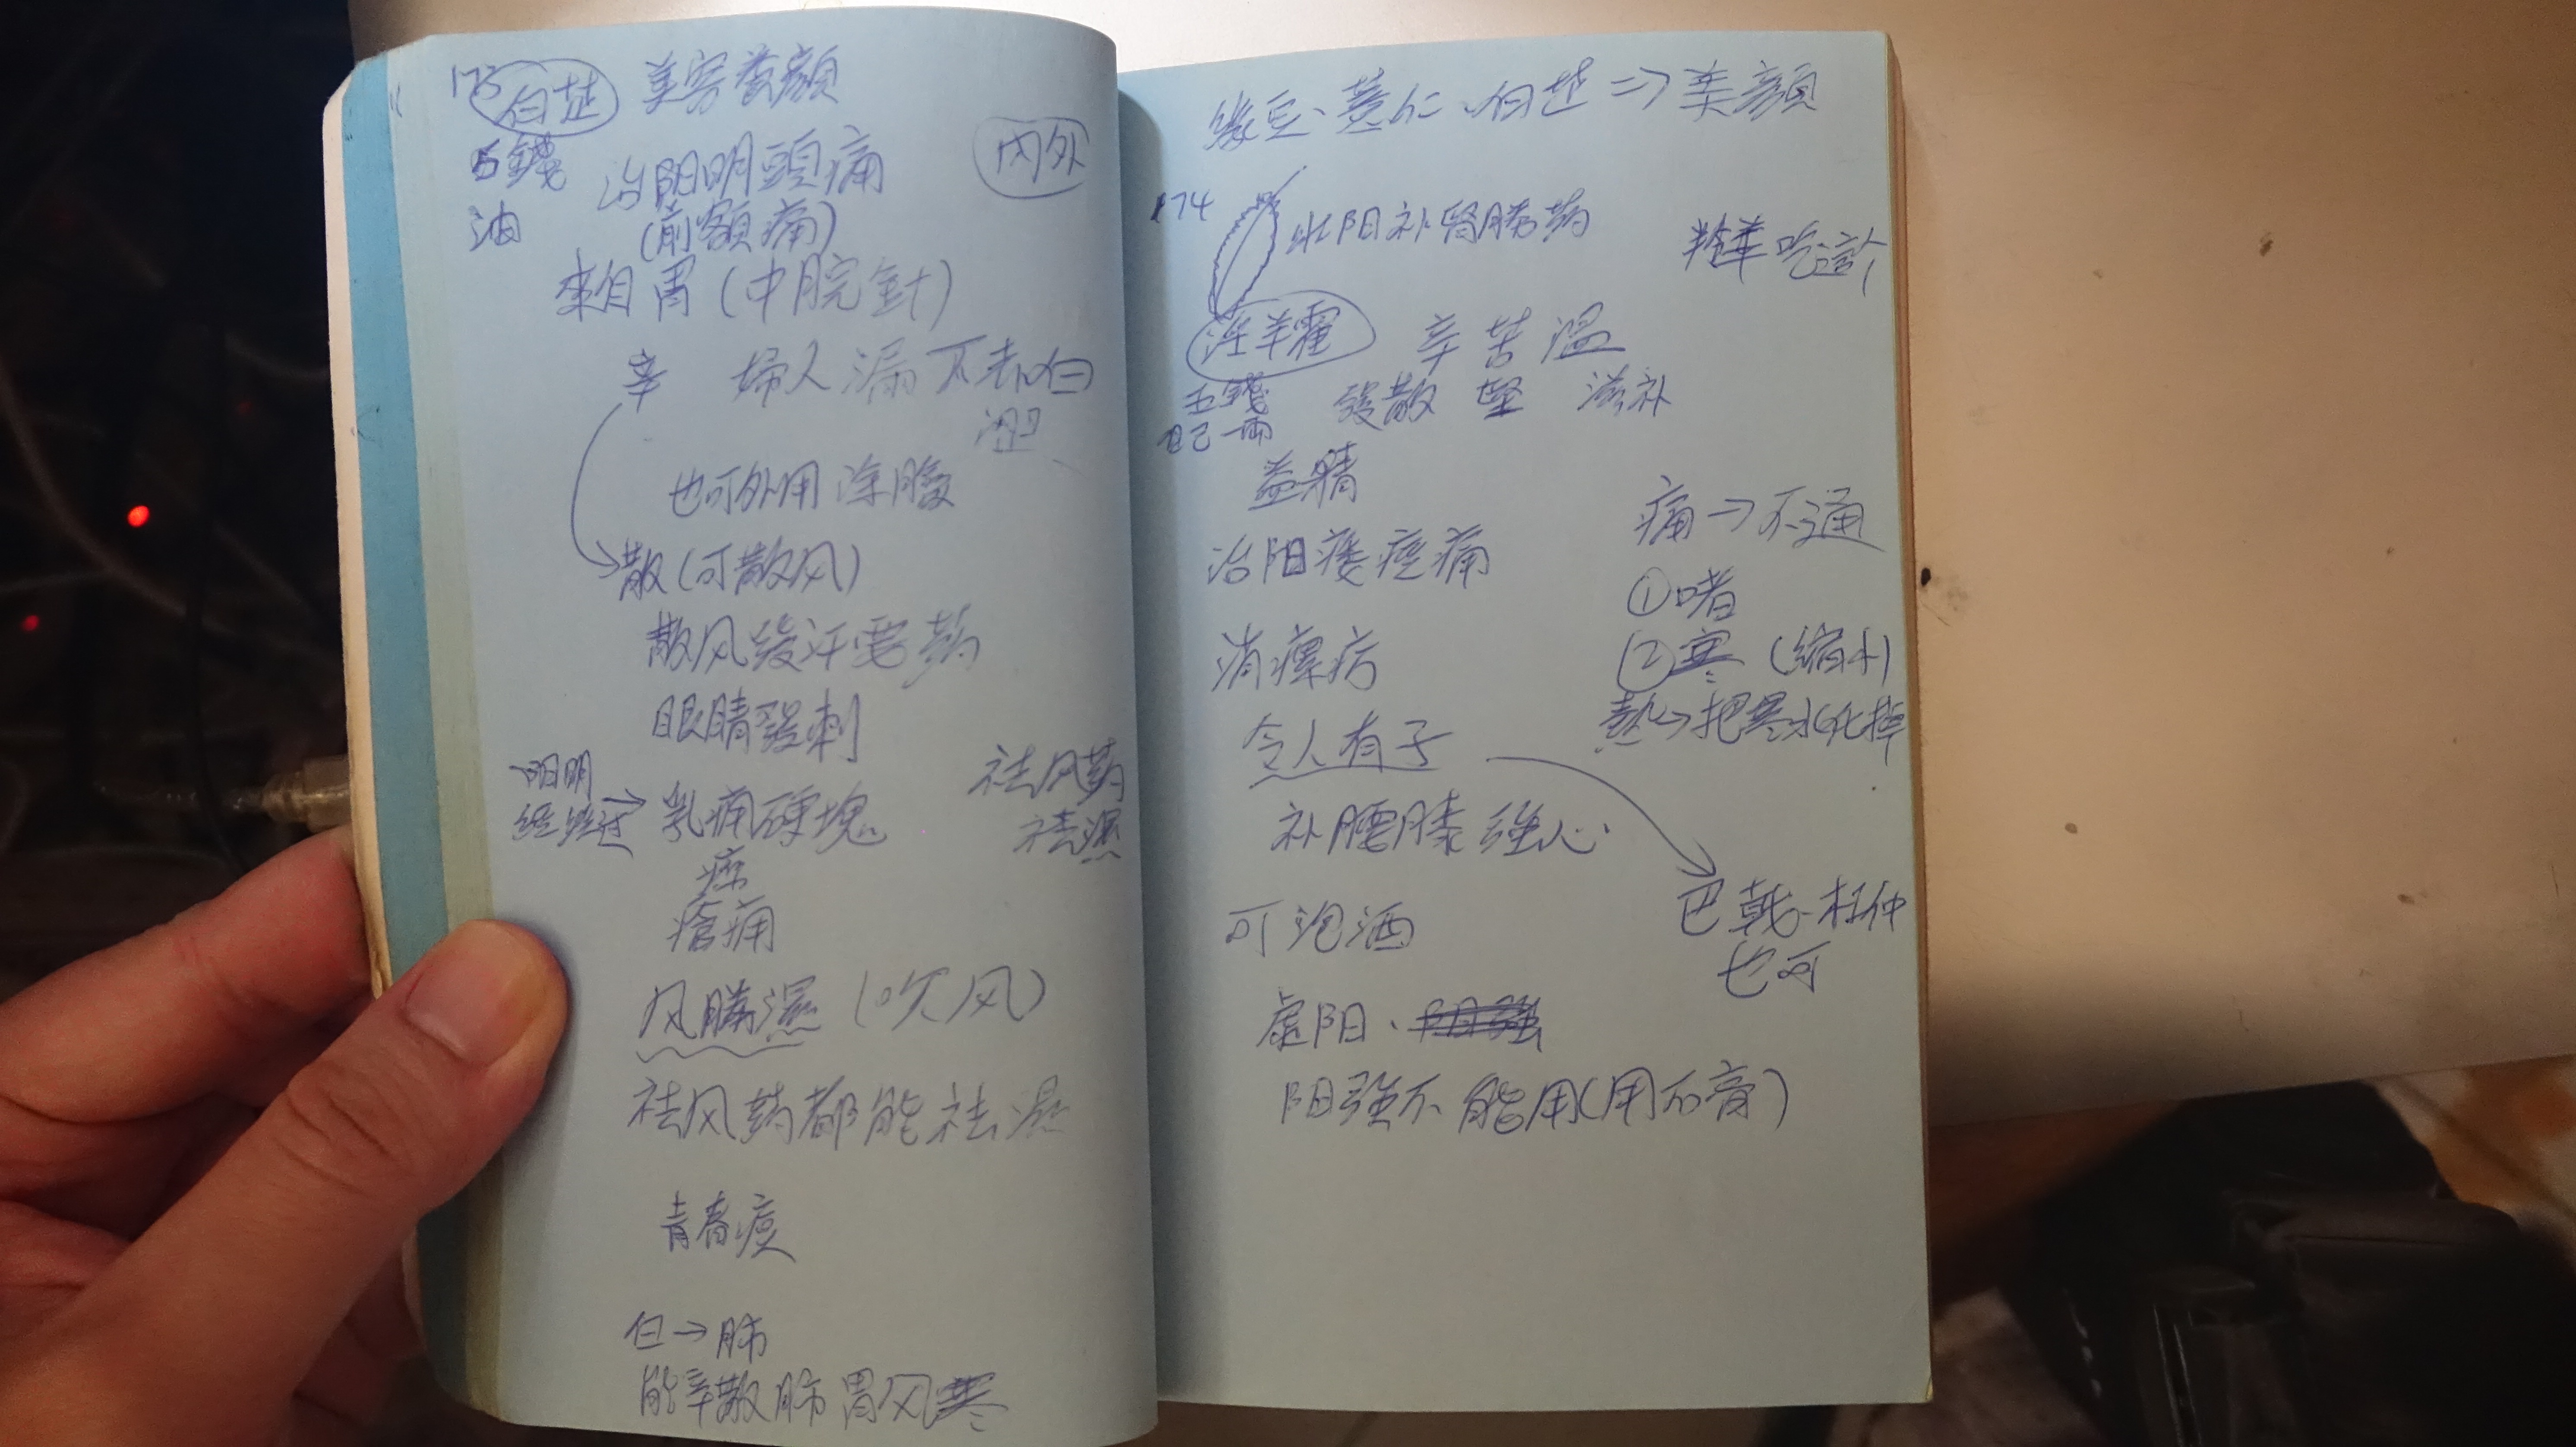 173 白芷 美容養顏
5錢 治陽明頭痛 內外
油 (前額痛)
來自胃(中脘針)
辛 婦人漏下赤白
濕
也可外用 涂膿
散(可散风)
散风發汗要药
眼睛强刺
阳明 祛风药
經絡过→乳痛硬塊 祛濕
瘡痛
风勝濕(吹风)
祛风药都能祛濕
青春痘
白→肺
能辛散肺胃风寒
綠豆、薏仁、白芷⇒美顏
174 壯阳补腎勝药 羚羊吃這个
淫羊霍 辛 苦 溫
五錢 發散 堅 滋补
自己一兩
益精
治阳痿痙痛
痛→不通
①堵
消瘰疬 ②寒(縮小)
熱→把寒水化掉
令人有子
补腰膝 强心
巴戟、杜仲
也可
可泡酒
虛阳、
阳强不能用(用石膏)